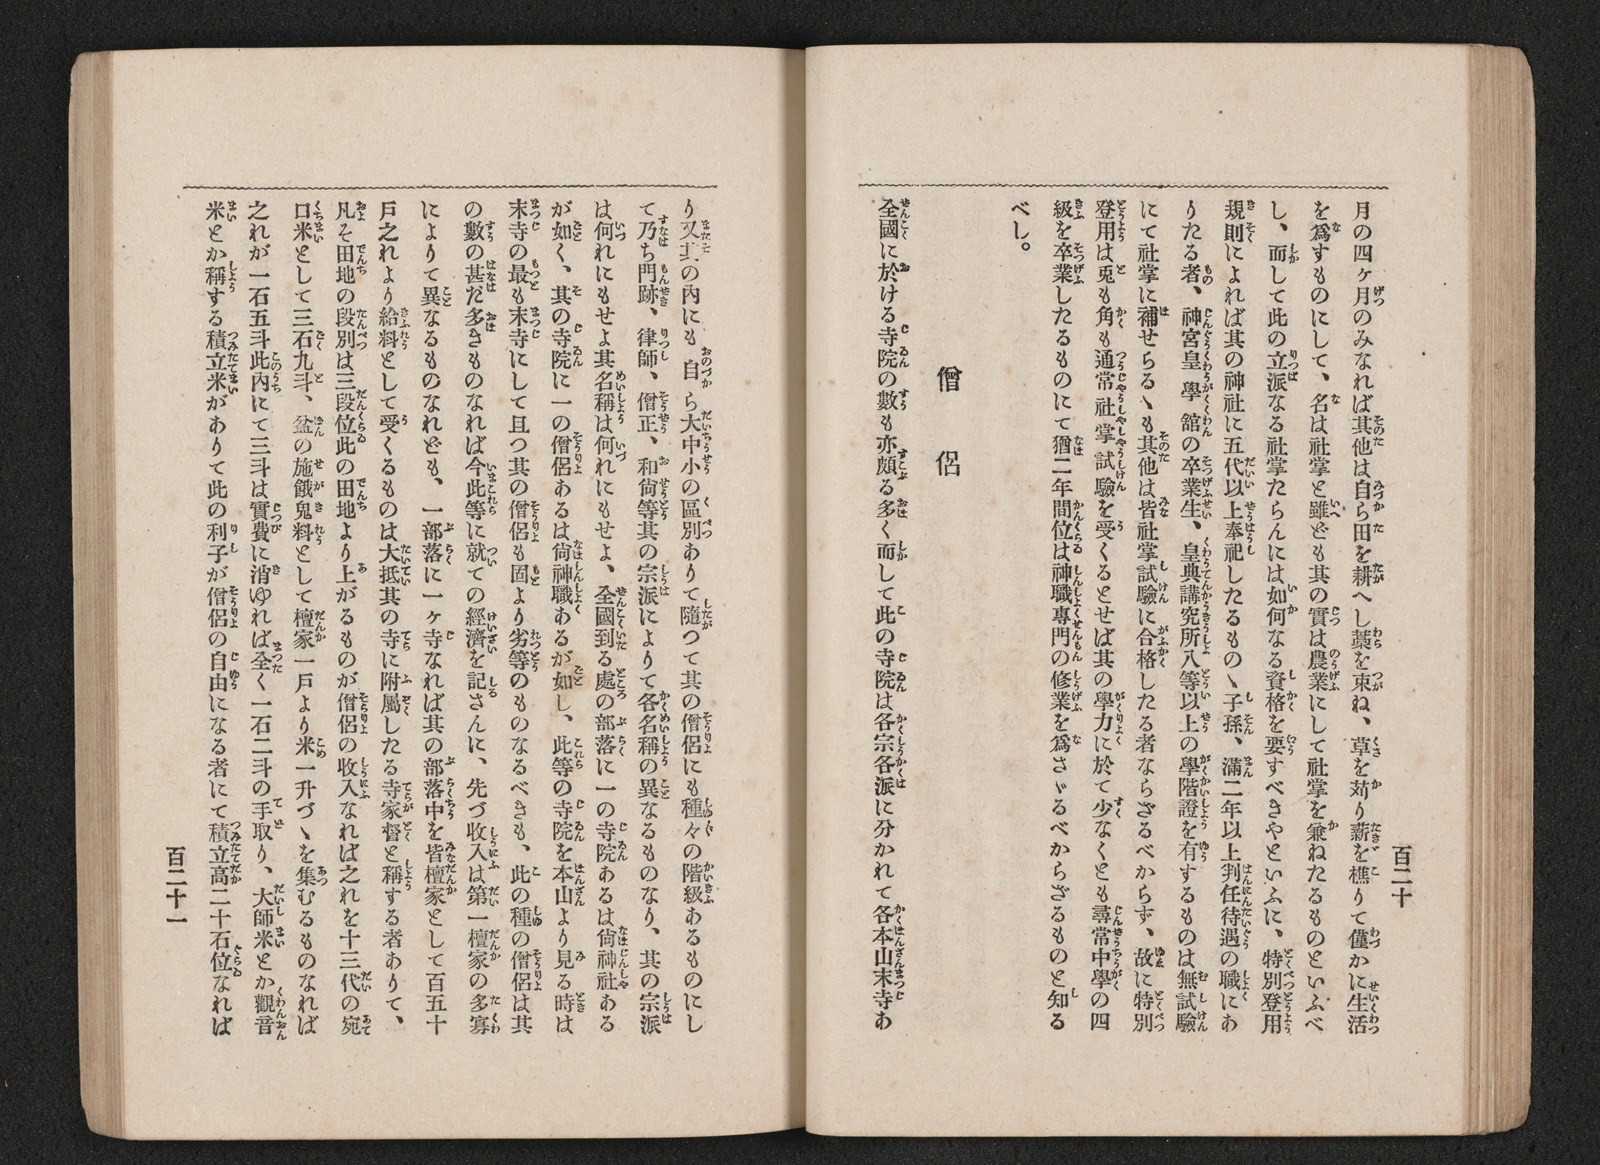 百二十
月の四ヶ月のみなれば其他は自ら田を耕へし藁を束ね、草を苅り薪を樵りて僅かに生活
を爲すものにして、名は社掌と雖ども其の實は農業にして社掌を兼ねたるものといふべ
し、而して此の立派なる社掌たらんには如何なる資格を要すべきやといふに、特別登用
規則によれば其の神社に五代以上奉祀したるものゝ子孫、滿二年以上判任待遇の職にあ
りたる者、神宮皇學舘の卒業生、皇典講究所八等以上の學階證を有するものは無試驗
にて社掌に補せらるゝも其他は皆社掌試驗に合格したる者ならざるべからず、故に特別
登用は兎も角も通常社掌試驗を受くるとせば其の學力に於て少なくとも尋常中學の四
級を卒業したるものにて猶二年間位は神職專門の修業を爲さゞるべからざるものと知る
べし。
僧侶
全國に於ける寺院の數も亦頗る多く而して此の寺院は各宗各派に分かれて各本山末寺あ
り又其の內にも自ら大中小の區別ありて隨つて其の僧侶にも種々の階級あるものにし
て乃ち門跡、律師、僧正、和尙等其の宗派によりて各名稱の異なるものなり、其の宗派
は何れにもせよ其名稱は何れにもせよ、全國到る處の部落に一の寺院あるは尙神社ある
が如く、其の寺院に一の僧侶あるは尙神職あるが如し、此等の寺院を本山より見る時は
末寺の最も末寺にして且つ其の僧侶も固より劣等のものなるべきも、此の種の僧侶は其
の數の甚だ多きものなれば今此等に就ての經濟を記さんに、先づ收入は第一檀家の多寡
によりて異なるものなれども、一部落に一ヶ寺なれば其の部落中を皆檀家として百五十
戶之れより給料として受くるものは大抵其の寺に附屬したる寺家督と稱する者ありて、
凡そ田地の段別は三段位此の田地より上がるものが僧侶の收入なれば之れを十三代の宛
口米として三石九斗、盆の施餓鬼料として檀家一戶より米一升づゝを集むるものなれば
之れが一石五斗此內にて三斗は實費に消ゆれば全く一石二斗の手取り、大師米とか觀音
米とか稱する積立米がありて此の利子が僧侶の自由になる者にて積立高二十石位なれば
百二十一